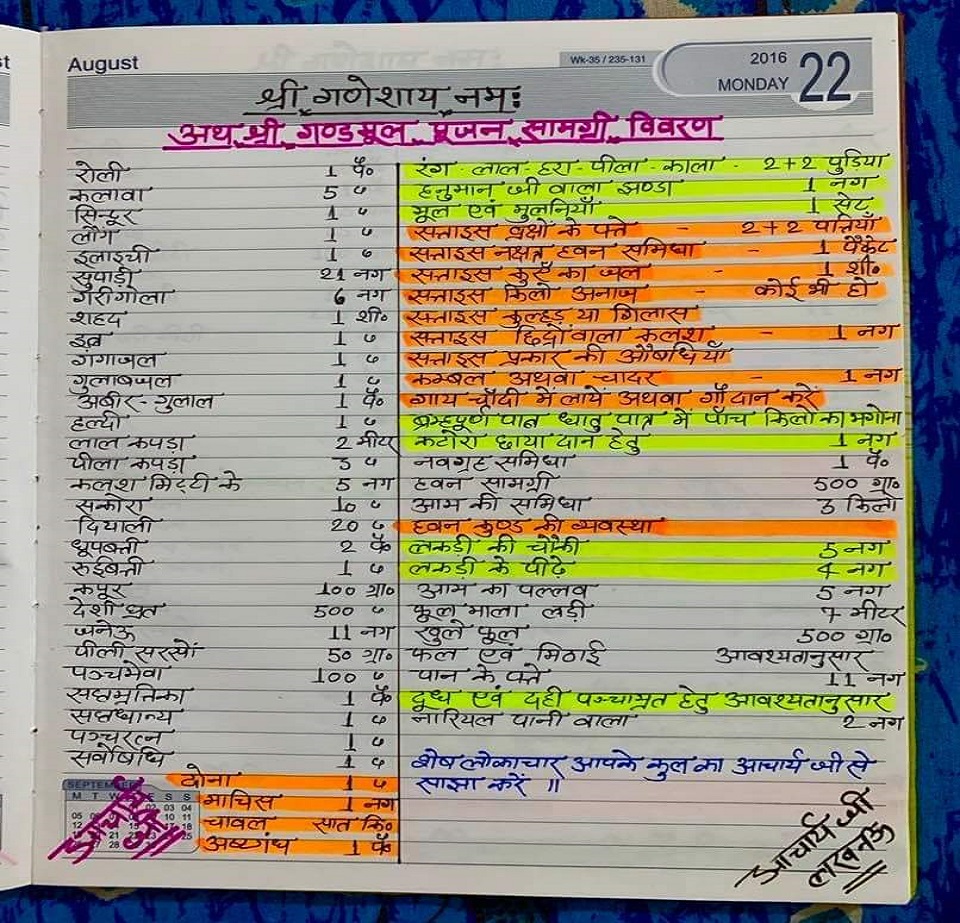 August
Wk-35 / 235-131
2016
MONDAY 22
श्री गणेशाय नमः
अथ श्री गण्डमूल पूजन सामग्री विवरण
रोली 1 पै०
कलावा 5 "
सिन्दूर 1 "
लौंग 1 "
इलाइची 1 "
सुपाड़ी 21 नग
गरीगोला 6 नग
शहद 1 शी०
इत्र 1 "
गंगाजल 1 "
गुलाबजल 1 "
अबीर-गुलाल 1 पै०
हल्दी 1 "
लाल कपड़ा 2 मीटर
पीला कपड़ा 3 "
कलश मिट्टी के 5 नग
सकोरा 10 "
दियाली 20 "
धूपबत्ती 2 पै
रुईबत्ती 1 "
कपूर 100 ग्रा०
देशी घ्रत 500 "
जनेऊ 11 नग
पीली सरसों 50 ग्रा०
पञ्चमेवा 100 "
सप्तम्रतिका 1 पै
सप्तधान्य 1 "
पञ्चरत्न 1 "
सर्वोषधि 1 "
दोना 1 "
माचिस 1 नग
चावल सात कि०
अष्टगंध 1 पै
SEPTEMBER
आचार्य जी
रंग - लाल-हरा-पीला-काला - 2+2 पुड़िया
हनुमान जी वाला झण्डा 1 नग
मूल एवं मुलनियाँ 1 सेट
सत्ताइस व्रक्षों के पत्ते - 2+2 पत्तियाँ
सत्ताइस नक्षत्र हवन समिधा - 1 पैकेट
सत्ताइस कुएँ का जल - 1 शी०
सत्ताइस किलो अनाज - कोई भी हो
सत्ताइस कुल्हड़ या गिलास
सत्ताइस छिद्रों वाला कलश - 1 नग
सत्ताइस प्रकार की औषधियाँ
कम्बल अथवा चादर - 1 नग
गाय चाँदी में लायें अथवा गौ दान करें
ब्रम्हपूर्ण पात्र धातु पात्र में पाँच किलो का भगोना
कटोरा छाया दान हेतु 1 नग
नवग्रह समिधा 1 पै०
हवन सामग्री 500 ग्रा०
आम की समिधा 3 किलो
हवन कुण्ड की व्यवस्था
लकड़ी की चौकी 5 नग
लकड़ी के पीढ़े 4 नग
आम का पल्लव 5 नग
फूल माला लड़ी 7 मीटर
खुले फूल 500 ग्रा०
फल एवं मिठाई आवश्यतानुसार
पान के पत्ते 11 नग
दूध एवं दही पञ्चाम्रत हेतु आवश्यतानुसार
नारियल पानी वाला 2 नग
शेष लोकाचार आपके कुल का आचार्य जी से
साझा करें ॥
आचार्य जी
लखनऊ